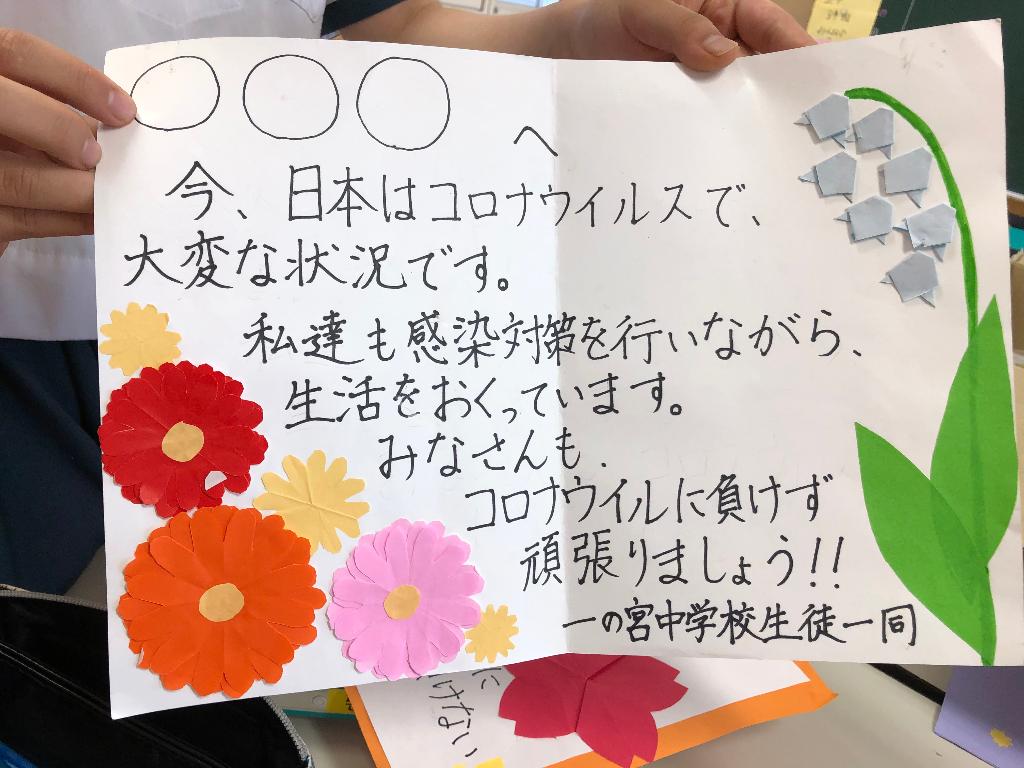 ○○○へ
今、日本はコロナウイルスで、
大変な状況です。
私達も感染対策を行いながら、
生活をおくっています。
みなさんも、
コロナウイルに負けず
頑張りましょう!!
一の宮中学校生徒一同
けない
に